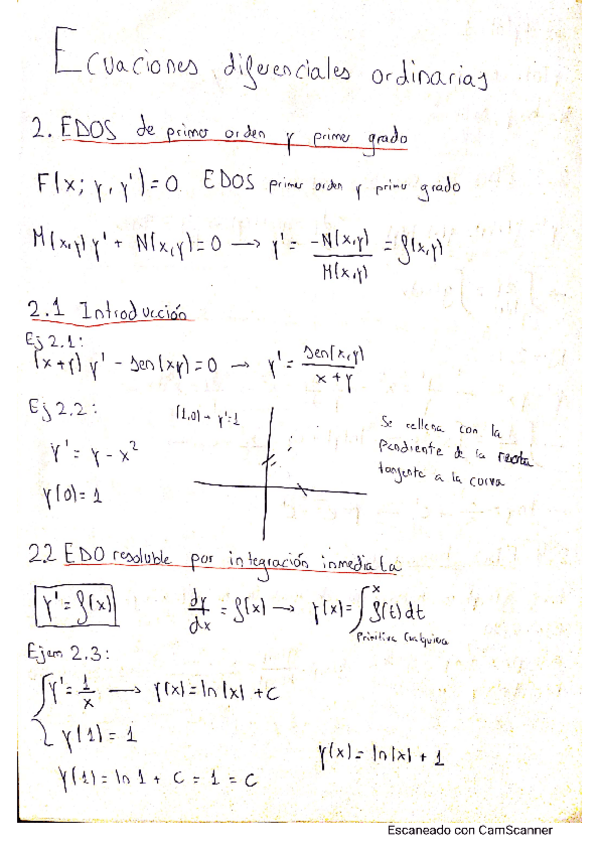 Ecuaciones diferenciales ordinarias
2. EDOS de primer orden y primer grado
F(x; y, y')=0 EDOS primer orden y primer grado
M(x,y) y' + N(x,y)=0 → y' = -N(x,y)/M(x,y) = f(x,y)
2.1 Introducción
Ej 2.1:
(x+y) y' - sen(xy)=0 → y' = sen(x,y)/x+y
Ej 2.2:
(1,0) → y'=1
y' = y - x²
y(0)=1
Se rellena con la
Pendiente de la recta
tangente a la curva
2.2 EDO resoluble por integración inmediata
y' = f(x)
dy/dx = f(x) → y(x) = ∫^x f(t) dt
Primitiva cualquiera
Ejem 2.3:
y' = 1/x → y(x) = ln|x| + C
y(1) = 1
y(1) = ln 1 + C = 1 = C
y(x) = ln|x| + 1
Escaneado con CamScanner